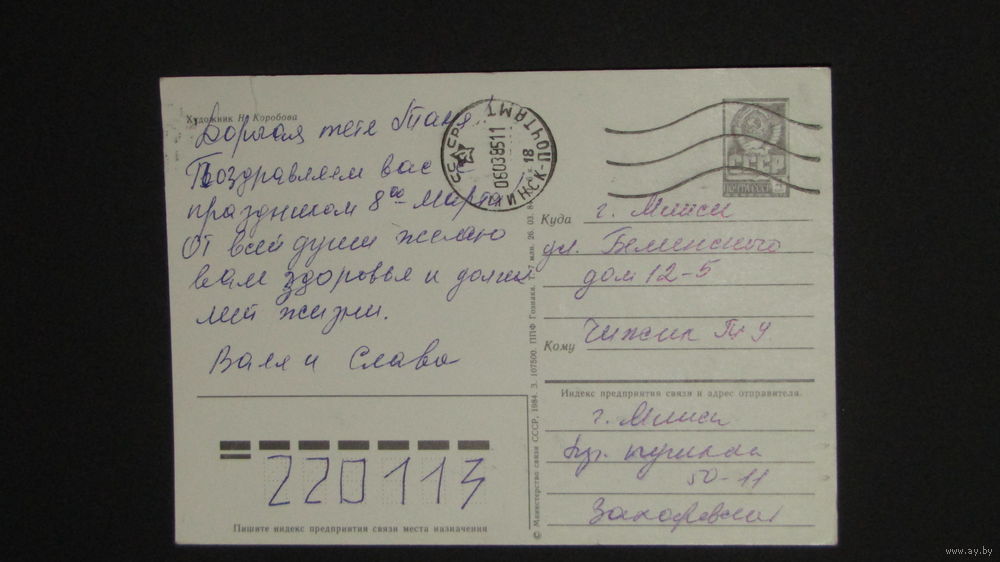 Художник Н. Коробова
Дорогая тетя Таня!
Поздравляем вас с
праздником 8ое марта
От всей души желаю
вам здоровья и долги
лет жизни.
Валя и Слава
220113
Пишите индекс предприятия связи места назначения
СССР
МИНСК-ПОЧТАМТ
06038511
18
СССР
Куда г. Минск
ул. Белинского
дом 12-5
Кому Чижик
Индекс предприятия связи и адрес отправителя.
г. Минск
пр. Пушкина
50-11
© Министерство связи СССР, 1984. З. 107500. ППФ Гознака.
www.ay.by